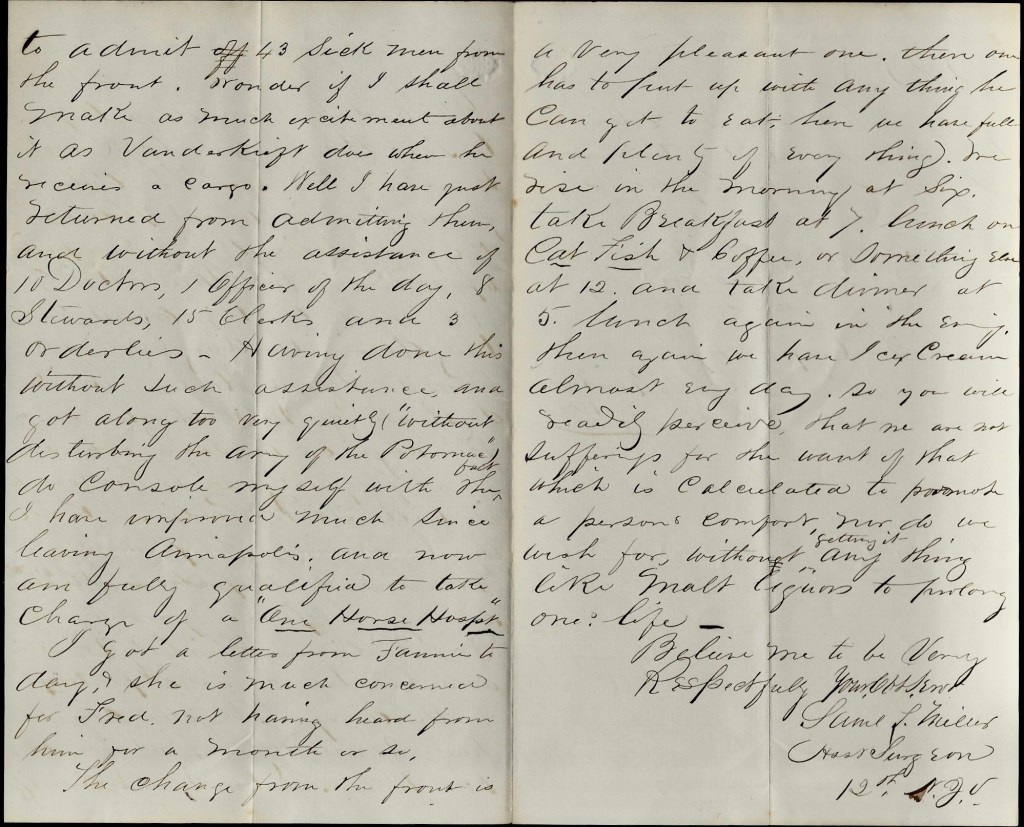 to admit off 43 Sick men from
the front. Wonder if I shall
make as much excitement about
it as Vanderkieft does when he
receives a cargo. Well I have just
returned from admitting them,
and without the assistance of
10 Doctors, 1 Officer of the day, 8
Stewards, 15 Clerks and 3
orderlies - Having done this
without such assistance, and
got along too very quietly ("without
disturbing the army of the Potomac")
do console myself with the fact
I have improved much since
leaving Annapolis. and now
am fully qualified to take
Charge of a "One Horse Hospt"
I got a letter from Fannie to
day, & she is much concerned
for Fred. not having heard from
him for a month or so.
The change from the front is
a very pleasant one. there one
has to put up with any thing he
Can get to eat. here we have full
and plenty of every thing. We
rise in the morning at Six.
take Breakfast at 7. lunch on
Cat Fish & Coffee, or Something Else
at 12. and take dinner at
5. lunch again in the Evng.
then again we have Ice Cream
almost evy day. so you will
readily perceive, that we are not
sufferings for the want of that
which is Calculated to promote
a persons comfort, nor do we
wish for, without getting it any thing
like Malt liquors to prolong
ones life —
Believe me to be Very
Respectfully Your Obt. Servt
Saml J. Miller
Asst Surgeon
12th N.J.V.